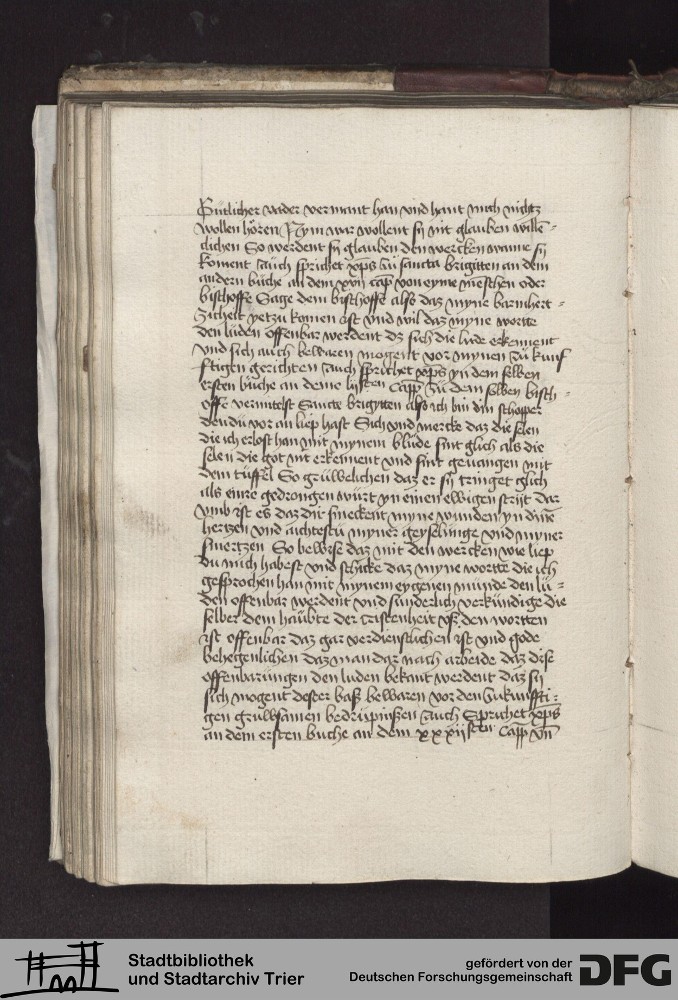 Gutlicher vader vermant han vnd hant mich nichtz
wollen hören Nym war wollent sy nit glauben wille-
clichen So werdent sy glauben den wercken wanne sy
koment Auch sprichet xps zu sancta brigitten an dem
andern buche an dem xvij cap von eyme menschen oder
bischoffe Sage dem bischoffe also daz myne barmhert-
zicheit yetzu komen ist vnd wil daz myne worte
den luden offenbar werdent dz sich die lude erkennent
vnd sich auch bewaren mogent vor mynen zu kunf
ftigen gerichten Auch sprichet xps yn dem selben
ersten buche an deme lijsten Capp zu dem selben bisch-
offe vermitelst Sancte brigytten also ich bin din schopper
den du vor an liep hast Sich vnd mercke daz die selen
die ich erlost han mit mynem blude sint glich als die
selen die got nit erkennent vnd sint geuangen mit
dem tüffel So gruwelichen daz er sy tringet glich
als einre gedrongen würt yn einen ewigen stryt Dar
vmb ist es daz dir smeckent myne wunden yn dime
hertzen vnd achtestu myner geyselunge vnd myner
smertzen So bewise daz mit den wercken wie liep
Du mich habest vnd schicke daz myne wortte die ich
gesprochen han mit mynem eygenen munde den lü-
den offenbar werdent vnd sunderlich verkündige die
selber dem haübte der cristenheit vß den wortten
ist offenbar daz gar verdienstlichen ist vnd gode
behegenlichen daz man dar nach arbeide daz dise
offenbarungen den luden bekant werdent daz sy
sich mogent dester baß bewaren vor den zukunffti-
gen gruwsamen bedrüpnißen Auch Sprichet xps
an dem ersten buche an dem xxxijsten Capp vn
Stadtbibliothek
und Stadtarchiv Trier
gefördert von der
Deutschen Forschungsgemeinschaft
DFG